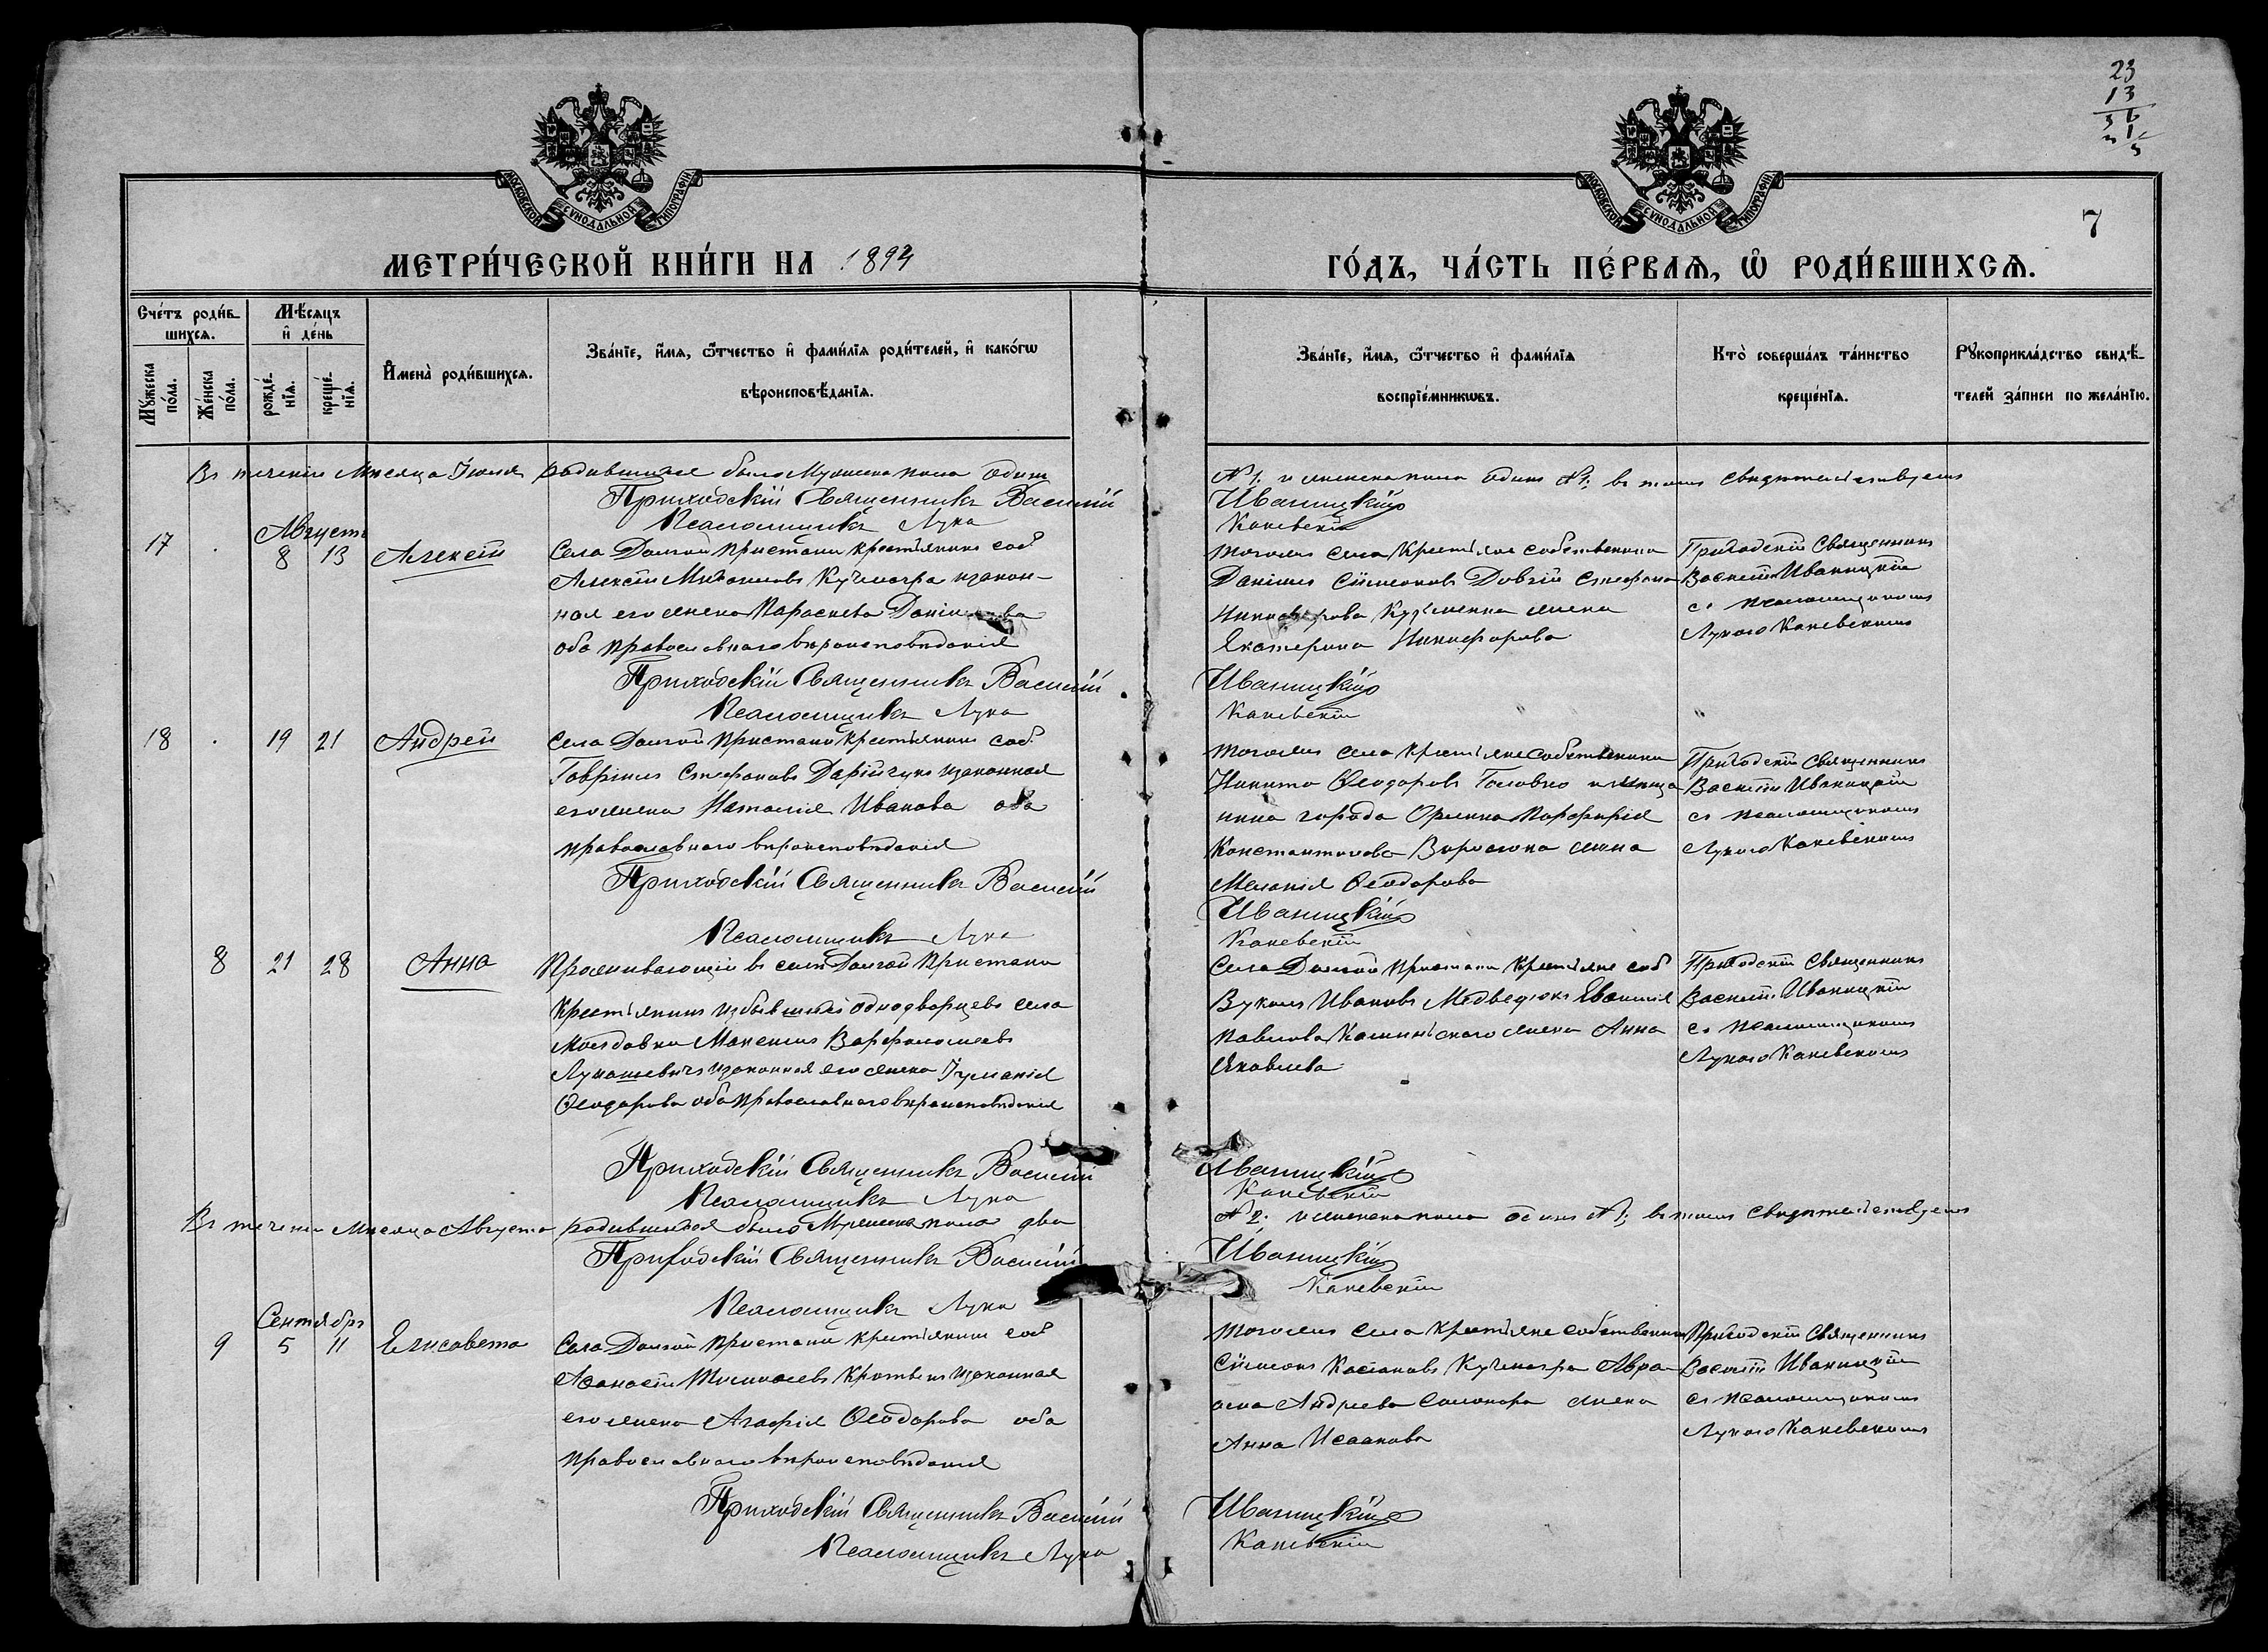 23
13
36
7
МОСКОВСКОЙ СѴНОДАЛЬНОЙ ТИПОГРАФІИ
МОСКОВСКОЙ СѴНОДАЛЬНОЙ ТИПОГРАФІИ
МЕТРИ́ЧЕСКОЙ КНИ́ГИ НА 1894
ГО́ДЪ, ЧА́СТЬ ПЕ́РВАѦ, Ѽ РОДИ́ВШИХСѦ.
Сче́тъ роди́в-
шихсѧ.
Мѣ́сѧцъ
и҆ де́нь
Мꙋ́жеска по́ла.
Же́нска по́ла.
рожде́-нїѧ.
креще́-нїѧ.
И҆мена̀ роди́вшихсѧ.
Зва́нїе, и҆́мѧ, ѻ҆́тчество и҆ фами́лїѧ роди́телей, и҆ како́гѡ
вѣроисповѣ́данїѧ.
Зва́нїе, и҆́мѧ, ѻ҆́тчество и҆ фами́лїѧ
воспрїе́мникѡвъ.
Кто̀ соверша́лъ та́инство
креще́нїѧ.
Рꙋкоприкла́дство свидѣ́-
телей за́писи по жела́нїю.
Въ теченіи Мѣсяца Іюля родившихся было Мужеска пола одинъ № 1; и женска пола одинъ № 1; въ томъ свидѣтельствуемъ
Приходскій Священникъ Василій Иваницкій
Псаломщикъ Лука Каневскій
Августъ
17 8 13 Алексѣй
Села Долгой Пристани крестьянинъ соб.
Алексѣй Михаиловъ Кучмагра и закон-
ная его жена Параскева Даніилова
оба православнаго вѣроисповѣданія
тогоже села крестьяне собственники
Даніилъ Сѵмеоновъ Довгій Стефана
Никифорова Кузменка жена
Екатерина Никифорова
Приходскій Священникъ
Василій Иваницкій
съ псаломщикомъ
Лукою Каневскимъ
Приходскій Священникъ Василій Иваницкій
Псаломщикъ Лука Каневскій
18 19 21 Андрей
Села Долгой Пристани крестьянинъ соб.
Гавріилъ Стефановъ Дарійчукъ и законная
его жена Наталія Иванова оба
православнаго вѣроисповѣданія
тогоже села крестьяне собственники
Никита Ѳеодоровъ Головко и мѣща
нина города Порфирія
Константинова жена
Меланія Ѳеодорова
Приходскій Священникъ
Василій Иваницкій
съ псаломщикомъ
Лукою Каневскимъ
Приходскій Священникъ Василій Иваницкій
Псаломщикъ Лука Каневскій
8 21 28 Анна
Проживающій въ селѣ Долгой Пристани
крестьянинъ изъ бывшихъ однодворцевъ села
Молдовки Максимъ Варфоломеевъ
Лукашевичъ и законная его жена Іуліанія
Ѳеодорова оба православнаго вѣроисповѣданія
Села Долгой Пристани крестьяне соб.
Вуколъ Ивановъ Медведюкъ
Павлова жена Анна
Яковлева
Приходскій Священникъ
Василій Иваницкій
съ псаломщикомъ
Лукою Каневскимъ
Приходскій Священникъ Василій Иваницкій
Псаломщикъ Лука Каневскій
Въ теченіи Мѣсяца Августа родившихся было Мужеска пола два № 2. и женска пола одинъ № 1; въ томъ свидѣтельствуемъ
Приходскій Священникъ Василій Иваницкій
Псаломщикъ Лука Каневскій
Сентябрь
9 5 11 Елисавета
Села Долгой Пристани крестьянинъ соб.
Аѳанасій и законная
его жена Агафія Ѳеодорова оба
православнаго вѣроисповѣданія
тогоже села крестьяне собственники
Сѵмеонъ Касіановъ Кучмагра Авра-
ама Андреева жена
Анна Исаакова
Приходскій Священникъ
Василій Иваницкій
съ псаломщикомъ
Лукою Каневскимъ
Приходскій Священникъ Василій Иваницкій
Псаломщикъ Лука Каневскій